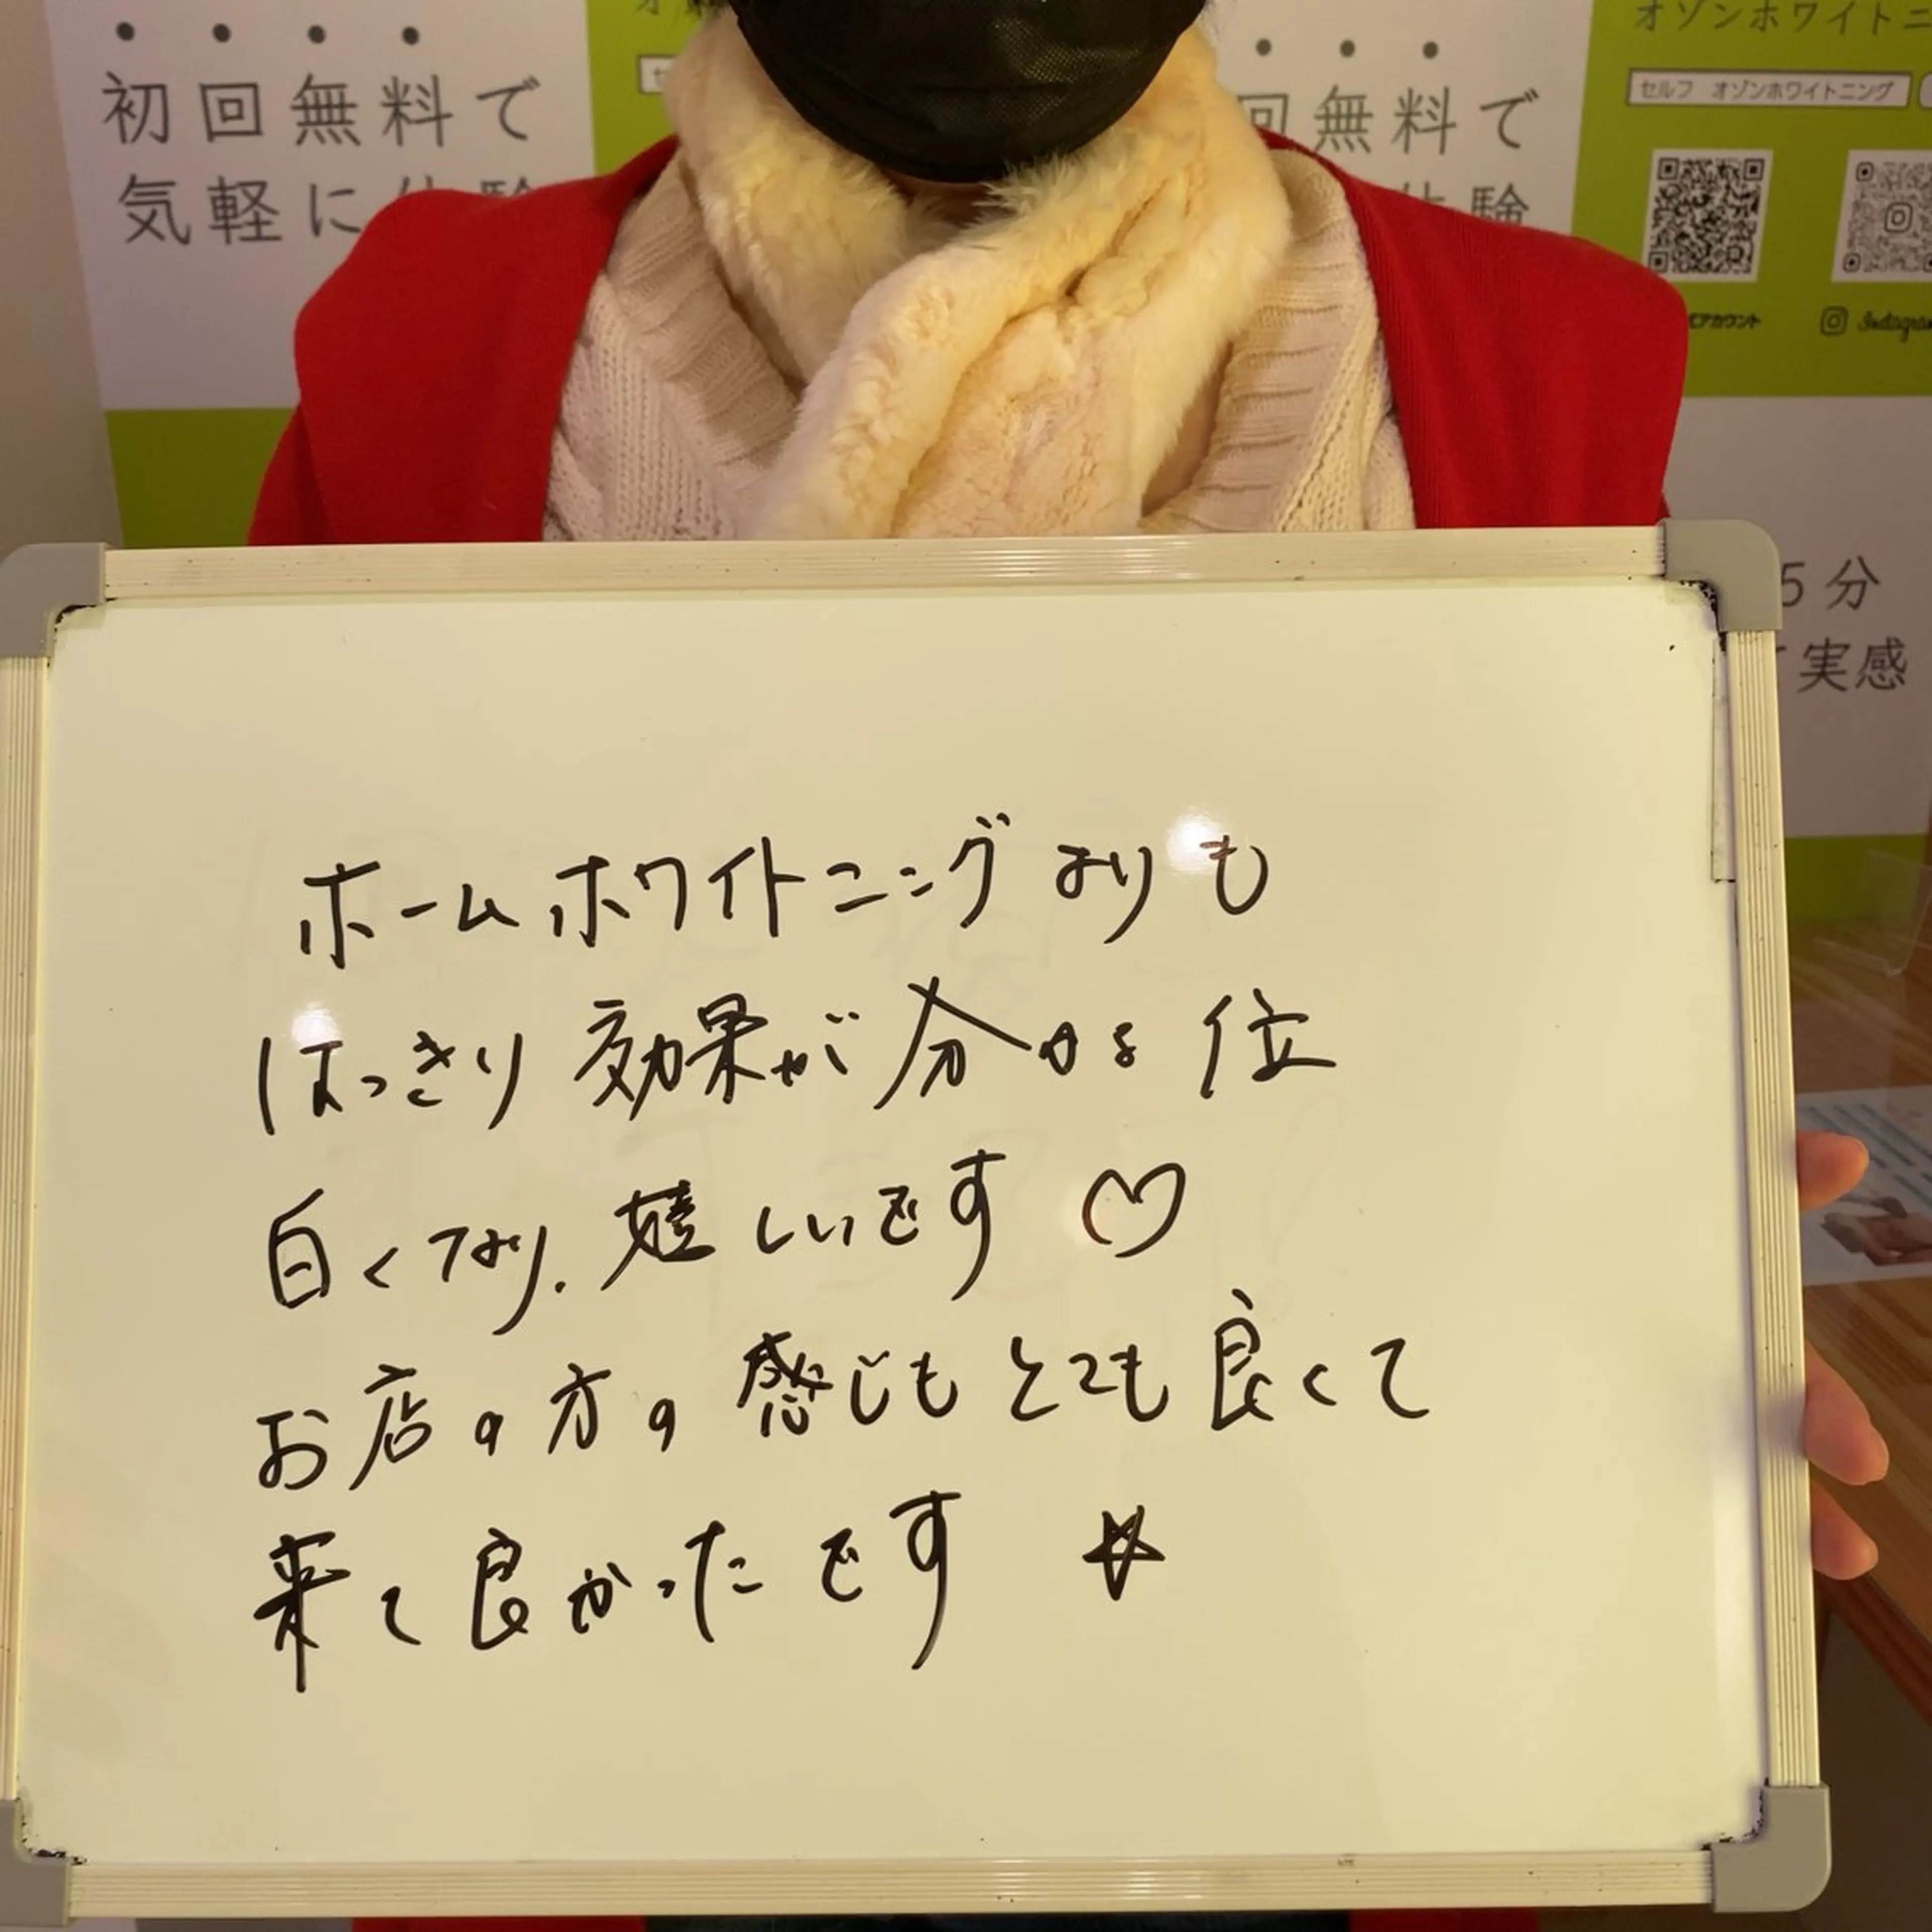 初回無料で
気軽に体験
回無料で
体験
オゾンホワイトニ
セルフ オゾンホワイトニング
アカウント
Instagram
5分
て実感
ホームホワイトニングよりも
はっきり効果が分かる位
白くなり、嬉しいです♡
お店の方の感じもとても良くて
来て良かったです☆